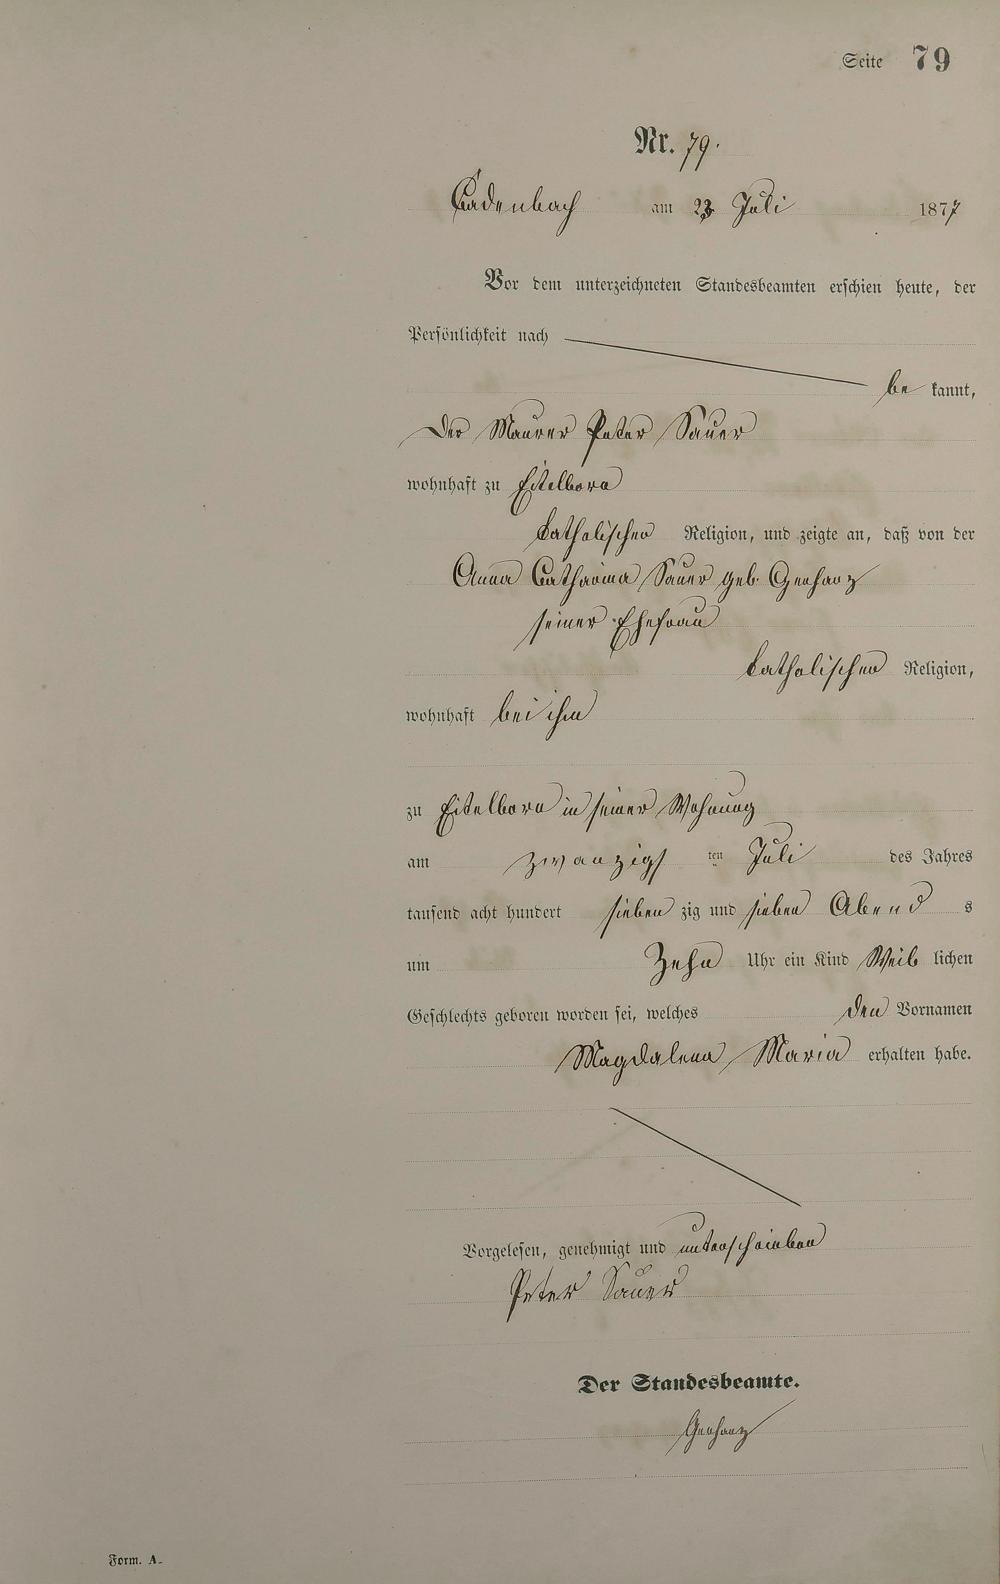 Seite 79
Nr. 79.
Cadenbach am 23 Juli 1877
Vor dem unterzeichneten Standesbeamten erschien heute, der
Persönlichkeit nach
be kannt,
der Maurer Peter Sauer
wohnhaft zu Eitelborn
katholischer Religion, und zeigte an, daß von der
Anna Catharina Sauer geb. Gerharz
seiner Ehefrau
katholischer Religion,
wohnhaft bei ihm
zu Eitelborn in seiner Wohnung
am zwanzigs ten Juli des Jahres
tausend acht hundert sieben zig und sieben Abend s
um Zehn Uhr ein Kind Weib lichen
Geschlechts geboren worden sei, welches den Vornamen
Magdalena Maria erhalten habe.
Vorgelesen, genehmigt und unterschrieben
Peter Sauer
Der Standesbeamte.
Gerharz
Form. A.